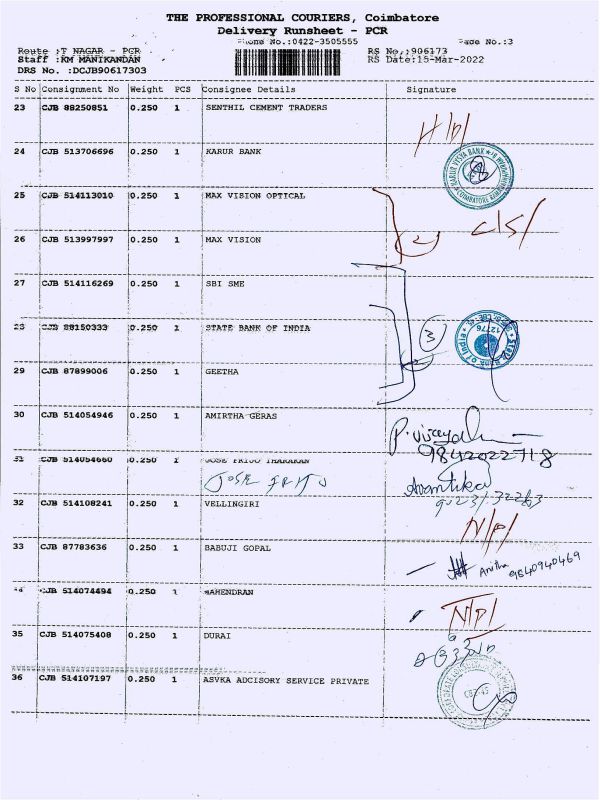 THE PROFESSIONAL COURIERS, Coimbatore
Delivery Runsheet - PCR
Phone No.:0422-3505555 Page No.:3
Route :T NAGAR - PCR RS No,:906173
Staff :KM MANIKANDAN RS Date:15-Mar-2022
DRS No. :DCJB90617303
S No Consignment No Weight PCS Consignee Details Signature
23 CJB 88250851 0.250 1 SENTHIL CEMENT TRADERS
24 CJB 513706696 0.250 1 KARUR BANK
KARUR VYSYA BANK
COIMBATORE
25 CJB 514113010 0.250 1 MAX VISION OPTICAL
26 CJB 513997997 0.250 1 MAX VISION
2
27 CJB 514116269 0.250 1 SBI SME
28 CJB 88150333 0.250 1 STATE BANK OF INDIA
3
State Bank of India
12776
29 CJB 87899006 0.250 1 GEETHA
30 CJB 514054946 0.250 1 AMIRTHA GERAS
9842022718
31 CJB 514054660 0.250 1 JOSE FRIJO THARAKAN
JOSE
Avantika
32 CJB 514108241 0.250 1 VELLINGIRI
N/P/
33 CJB 87783636 0.250 1 BABUJI GOPAL
Anitha
9840940469
34 CJB 514074494 0.250 1 MAHENDRAN
N/P/
35 CJB 514075408 0.250 1 DURAI
36 CJB 514107197 0.250 1 ASVKA ADCISORY SERVICE PRIVATE